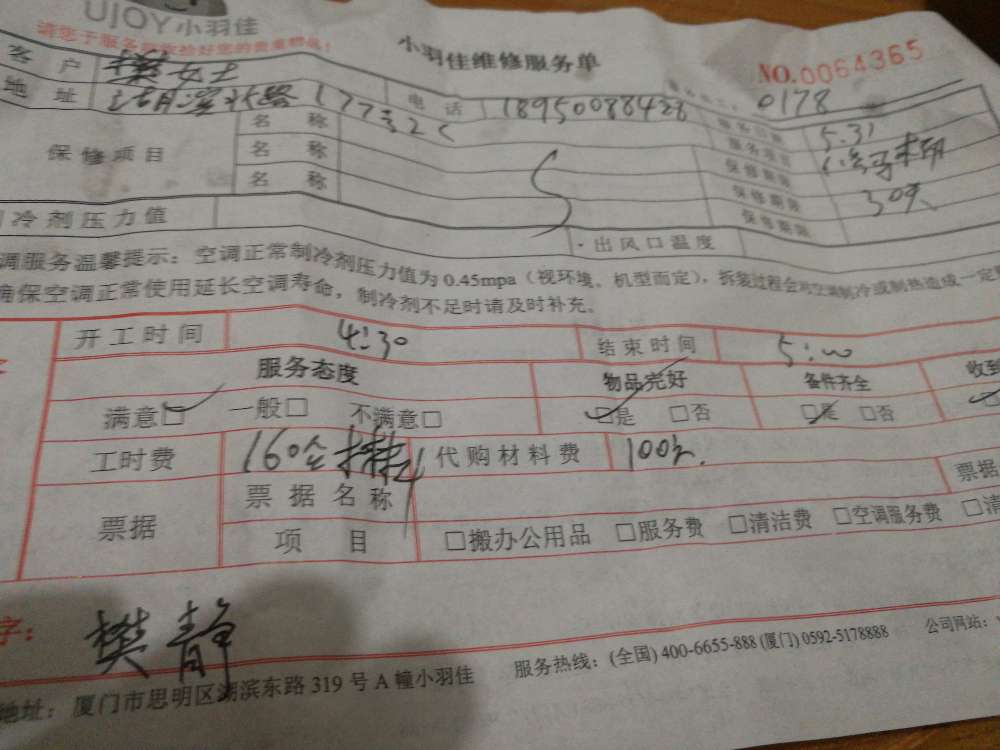 UJOY小羽佳
请您于服务前收拾好您的贵重物品!
小羽佳维修服务单
NO.0064365
客户 樊女士
0178
地址 湖滨北路 电话 18950088428 服务日期 5.31
保修项目 名称 服务项目
名称 保修期限 30天
名称 保修期限
保修期限
冷剂压力值 出风口温度
调服务温馨提示：空调正常制冷剂压力值为 0.45mpa（视环境、机型而定），拆装过程会对空调制冷或制热造成一定
确保空调正常使用延长空调寿命，制冷剂不足时请及时补充。
开工时间 4:30 结束时间 5:00
服务态度 物品完好 备件齐全 收到
满意□ 一般□ 不满意□ □是 □否 □是 □否
工时费 160 代购材料费 100元.
票据 票据名称 票据
项目 □搬办公用品 □服务费 □清洁费 □空调服务费 □清
字：樊静
地址：厦门市思明区湖滨东路 319 号 A 幢小羽佳 服务热线：(全国) 400-6655-888 (厦门) 0592-5178888 公司网站：